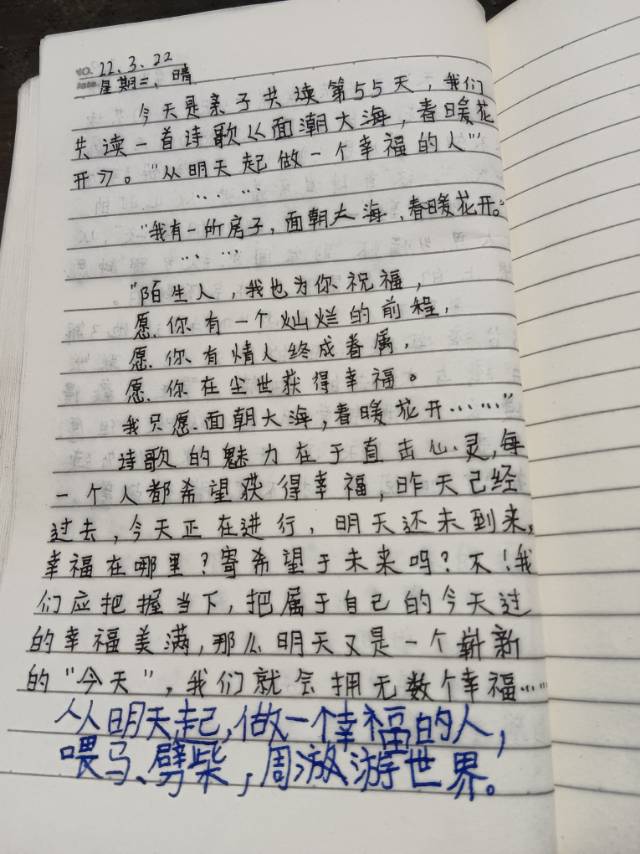 NO.
22.3.22
星期二、晴
今天是亲子共读第55天，我们
共读一首诗歌《面潮大海，春暖花
开》。"从明天起做一个幸福的人"
… …
"我有一所房子，面朝大海，春暖花开。"
… …
"陌生人，我也为你祝福，
愿你有一个灿烂的前程，
愿你有情人终成眷属，
愿你在尘世获得幸福。
我只愿面朝大海，春暖花开……"
诗歌的魅力在于直击心灵，每
一个人都希望获得幸福，昨天已经
过去，今天正在进行，明天还未到来，
幸福在哪里？寄希望于未来吗？不！我
们应把握当下，把属于自己的今天过
的幸福美满，那么明天又是一个崭新
的"今天"，我们就会拥无数个幸福……
从明天起，做一个幸福的人，
喂马、劈柴，周游世界。